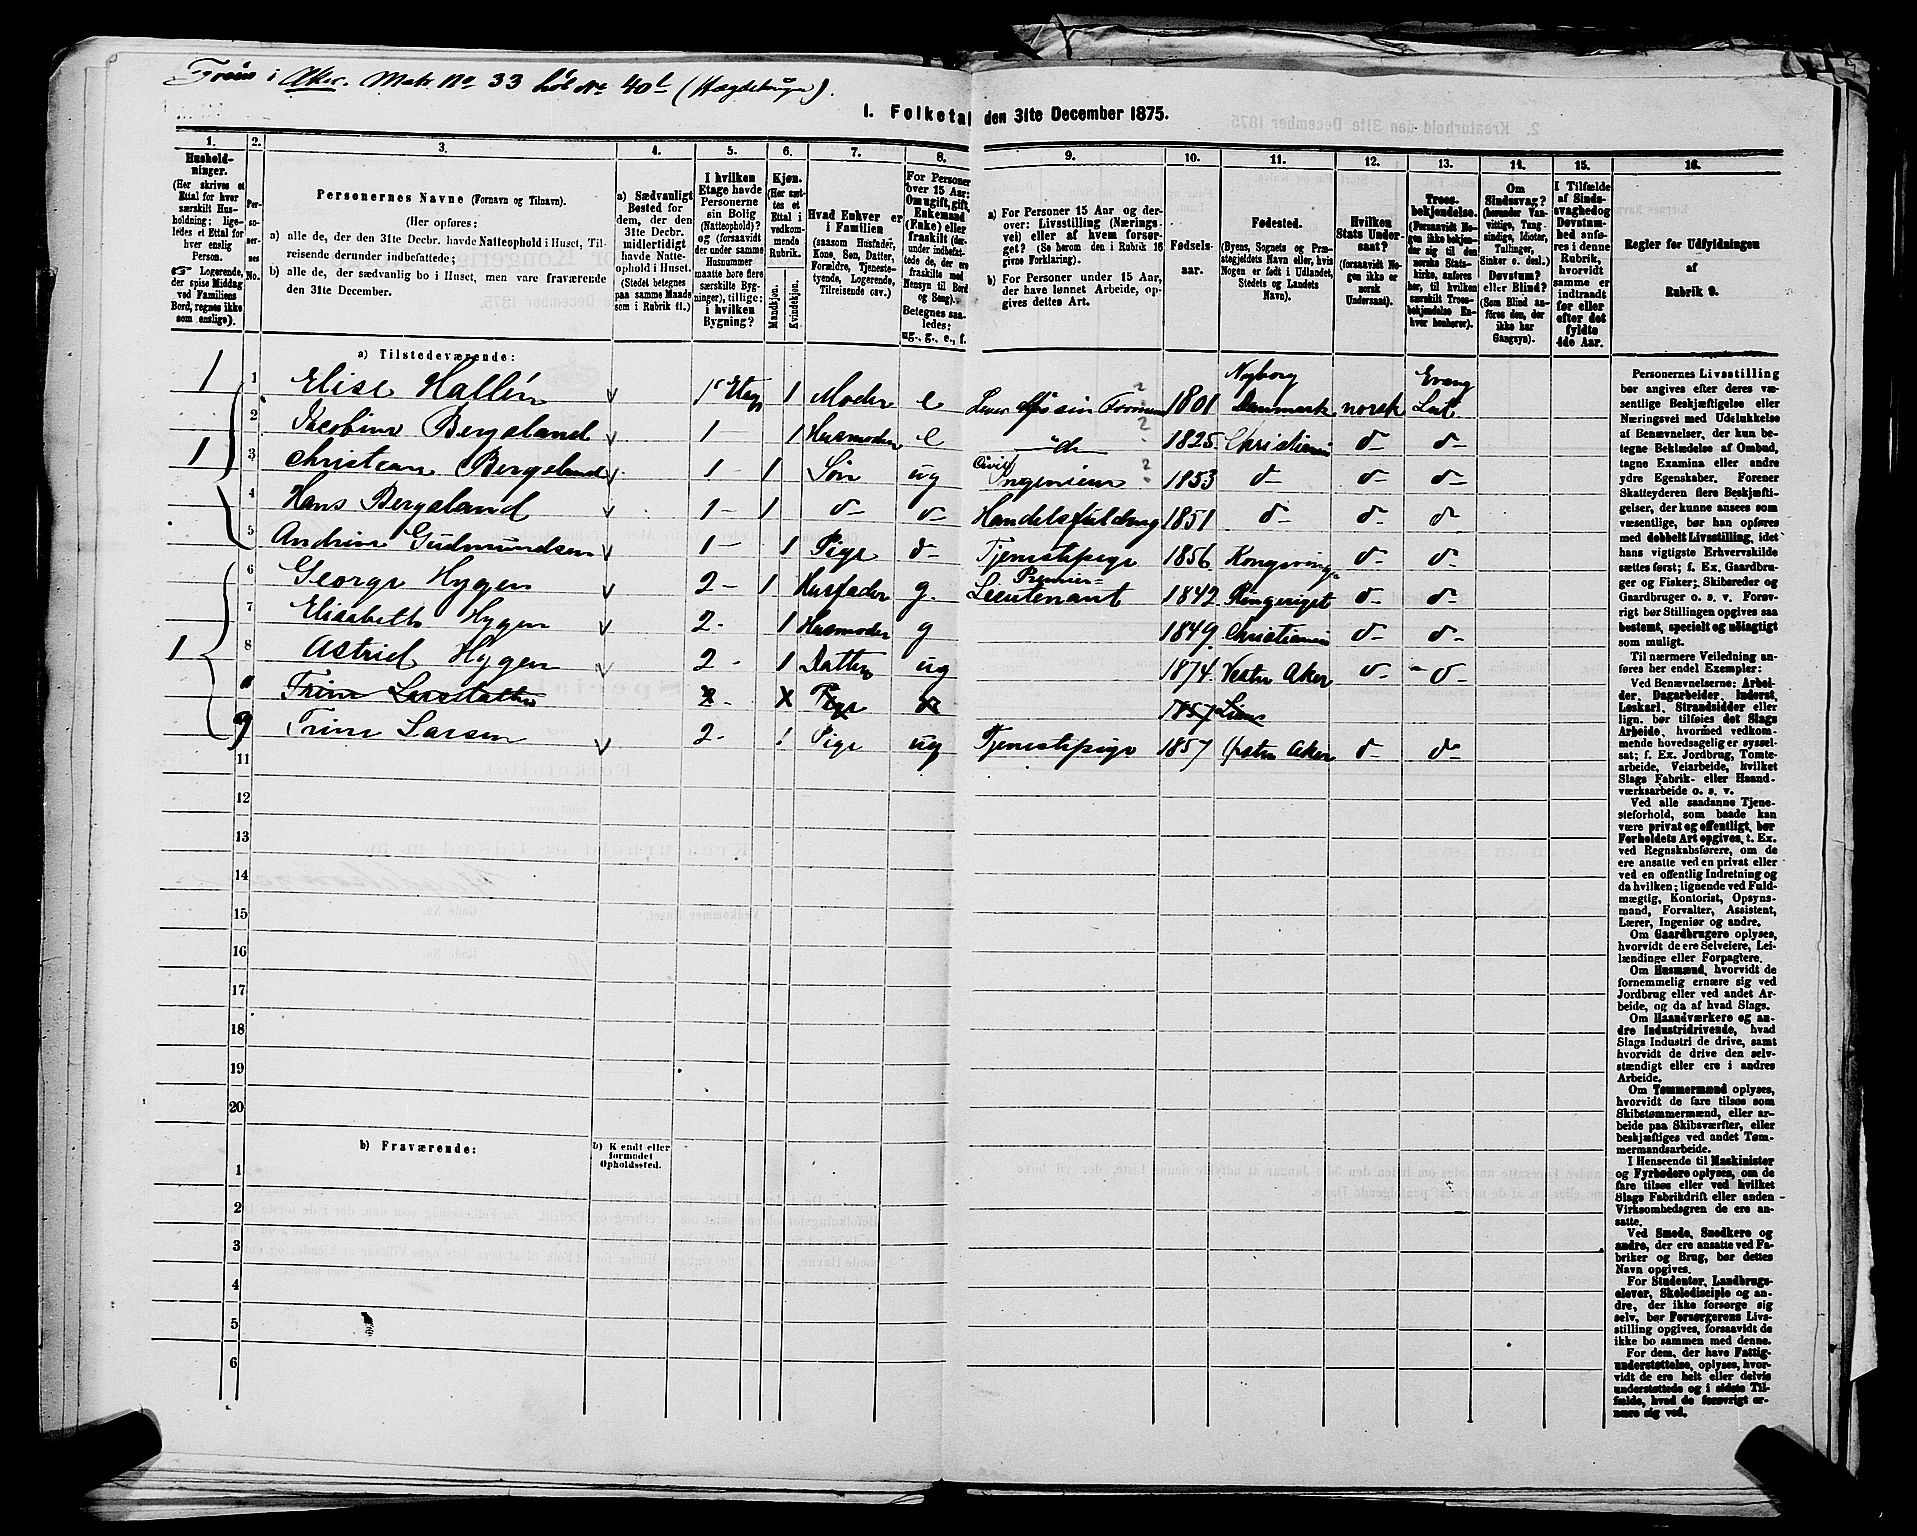 Frøen i Aker. Matr. No 33 Løb No 40b (Hægdehaugen).
1. Folketal den 31te December 1875.
1. 2. 3. 4. 5. 6. 7. 8. 9. 10. 11. 12. 13. 14. 15. 16.
Hushold-
ninger.
(Her skrives et
Ettal for hver
særskilt Hus-
holdning; lige-
ledes et Ettal for
hver enslig
Person.
☞ Logerende,
der spise Middag
ved Familiens
Bord, regnes ikke
som enslige).
Per-
so-
ner-
nes
No.
Personernes Navne (Fornavn og Tilnavn).
(Her opføres:
a) alle de, der den 31te Decbr. havde Natteophold i Huset, Til-
reisende derunder indbefattede;
b) alle de, der sædvanlig bo i Huset, men vare fraværende
den 31te December.
a) Sædvanligt
Bosted for
dem, der den
31te Decbr.
midlertidigt
havde Natte-
ophold i Huset.
(Stedet betegnes
paa samme Maade
som i Rubrik 11.)
I hvilken
Etage havde
Personerne
sin Bolig
(Natteophold)?
og (forsaavidt
der under samme
Husnummer
maatte høre flere
særskilte Byg-
ninger), tillige:
i hvilken
Bygning?
Kjøn.
(Her sæt-
tes et
Ettal i
vedkom-
mende
Rubrik.
Mandkjøn.
Kvindekjøn.
Hvad Enhver er
i Familien
(saasom Husfader,
Kone, Søn, Datter,
Forældre, Tjeneste-
tyende, Logerende,
Tilreisende osv.)
For Personer
over 15 Aar;
Om ugift, gift,
Enkemand
(Enke) eller
fraskilt (der-
under indbefat-
tede de, der ere
fraskilte med
Hensyn til Bord
og Seng).
Betegnes saa-
ledes:
ug., g., e., f.
a) For Personer 15 Aar og der-
over: Livsstilling (Nærings-
vei) eller af hvem forsør-
get? (Se herom den i Rubrik 16
givne Forklaring).
b) For Personer under 15 Aar,
der have lønnet Arbeide, op-
gives dettes Art.
Fødsels-
aar.
Fødested.
(Byens, Sognets og Præ-
stegjeldets Navn eller, hvis
Nogen er født i Udlandet,
Stedets og Landets
Navn).
Hvilken
Stats Under-
saat?
(forsaavidt No-
gen ikke er
norsk
Undersaat).
Troes-
bekjendelse.
(Forsaavidt No-
gen ikke bekjen-
der sig til den
norske Stats-
kirke, anføres
her, til hvilken
særskilt Troes-
bekjendelse En-
hver henhører).
Om
Sindssvag?
(herunder Van-
vittige, Tung-
sindige, Idioter,
Tullinger,
Sinker o. desl.)
Døvstum?
eller Blind?
(Som Blind an-
føres den, der
ikke har
Gangsyn).
I Tilfælde
af Sinds-
svaghed og
Døvstum-
hed anfø-
res i denne
Rubrik,
hvorvidt
samme er
indtraadt
før eller
efter det
fyldte
4de Aar.
Regler for Udfyldningen
af
Rubrik 9.
a) Tilstedeværende:
1 1 Elise Hallén 1ste Etage 1 Moder e 1801 Nyborg Danmark norsk Evang Luth
2 Jacobine Bergsland 1 - 1 Husmoder e - " d 1825 Christiania d - d -
1 3 Christian Bergsland 1 - 1 Søn ug Civil Ingeniør 1853 d - d - d -
4 Hans Bergsland 1 - 1 d - d - Handelsfuldmg 1851 d - d - d -
5 Andrine Gudmundsen 1 - 1 Pige d - Tjenestepige 1856 Kongsvinger d - d -
6 George Hygen 2 - 1 Husfader g. Premier= Lieutenant 1842 Ringeriget d - d -
7 Elisabeth Hygen 2 - 1 Husmoder g 1849 Christiania d - d -
1 8 Astrid Hygen 2 - 1 Datter ug 1874 Vestre Aker d - d -
Trine Larsdatter 2 - Pige 1857
9 Trine Larsen 2 - 1 Pige ug Tjenestepige 1857 Østre Aker d - d -
11
12
13
14
15
16
17
18
19
20
b) Fraværende:
b) Kjendt eller
formodet
Opholdssted.
1
2
3
4
5
6
Personernes Livsstilling
bør angives efter deres væ-
sentlige Beskjæftigelse eller
Næringsvei med Udelukkelse
af Benævnelser, der kun be-
tegne Beklædelse af Ombud,
tagne Examina eller andre
ydre Egenskaber. Forener
Skatteyderen flere Beskjæfti-
gelser, der kunne ansees som
væsentlige, bør han opføres
med dobbelt Livsstilling, idet
hans vigtigste Erhvervskilde
sættes først; f. Ex. Gaardbru-
ger og Fisker; Skibsreder og
Gaardbruger o. s. v. Forøv-
rigt bør Stillingen opgives saa
bestemt, specielt og nøiagtigt
som muligt.
Til nærmere Veiledning an-
føres her endel Exempler:
Ved Benævnelserne: Arbei-
der, Dagarbeider, Inderst,
Løskarl, Strandsidder eller
lign. bør tilføies det Slags
Arbeide, hvormed vedkom-
mende hovedsagelig er syssel-
sat; f. Ex. Jordbrug, Tomte-
arbeide, Veiarbeide, hvilket
Slags Fabrik- eller Haand-
værksarbeide o. s. v.
Ved alle saadanne Tjene-
steforhold, som baade kan
være privat og offentligt, bør
Forholdets Art opgives, t. Ex.
ved Regnskabsførere, om de
ere ansatte ved en privat eller
ved en offentlig Indretning og
da hvilken; lignende ved Fuld-
mægtig, Kontorist, Opsyns-
mand, Forvalter, Assistent,
Lærer, Ingeniør og andre.
Om Gaardbrugere oplyses,
hvorvidt de ere Selveiere, Lei-
lændinge eller Forpagtere.
Om Husmænd, hvorvidt de
fornemmelig ernære sig ved
Jordbrug eller ved andet Ar-
beide, og da af hvad Slags.
Om Haandværkere og an-
dre Industridrivende, hvad
Slags Industri de drive, samt
hvorvidt de drive den selv-
stændigt eller ere i andres
Arbeide.
Om Tømmermænd oplyses,
hvorvidt de fare tilsøs som
Skibstømmermænd, eller ar-
beide paa Skibsværfter, eller
beskjæftiges ved andet Tøm-
mermandsarbeide.
I Henseende til Maskinister
og Fyrbødere oplyses, om de
fare tilsøs eller ved hvilket
Slags Fabrikdrift eller anden
Virksomhedsgren de ere an-
satte.
Ved Smede, Snedkere og
andre, der ere ansatte ved Fa-
briker og Brug, bør dettes
Navn opgives.
For Studenter, Landbrugs-
elever, Skoledisciple og an-
dre, der ikke forsørge sig
selv, bør Forsørgerens Livs-
stilling opgives, forsaavidt de
ikke bo sammen med denne.
For dem, der have Fattig-
understøttelse, oplyses, hvor-
vidt de ere helt eller delvis
understøttede og i sidste Til-
fælde, hvad de forøvrigt er-
nære sig ved.